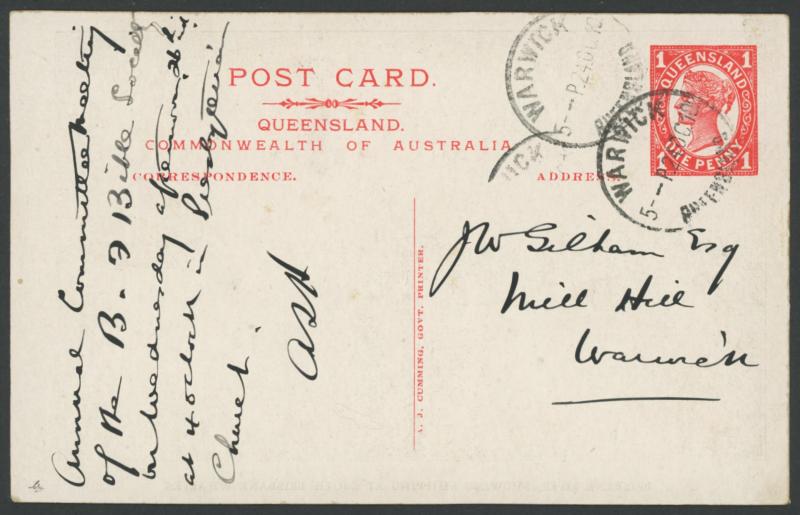 POST CARD.
QUEENSLAND.
COMMONWEALTH OF AUSTRALIA.
CORRESPONDENCE.
ADDRESS.
1 QUEENSLAND 1
1 ONE PENNY 1
WARWICK
QUEENSLAND
WARWICK
QUEENSLAND
Annual Committee Meeting
of the B. & F Bible Society
on Wednesday afternoon 26th
at 4 o'clock in Presbyterian
Church.
ASH
A. J. CUMMING, GOVT. PRINTER.
JW Gilham Esq
Mill Hill
Warwick